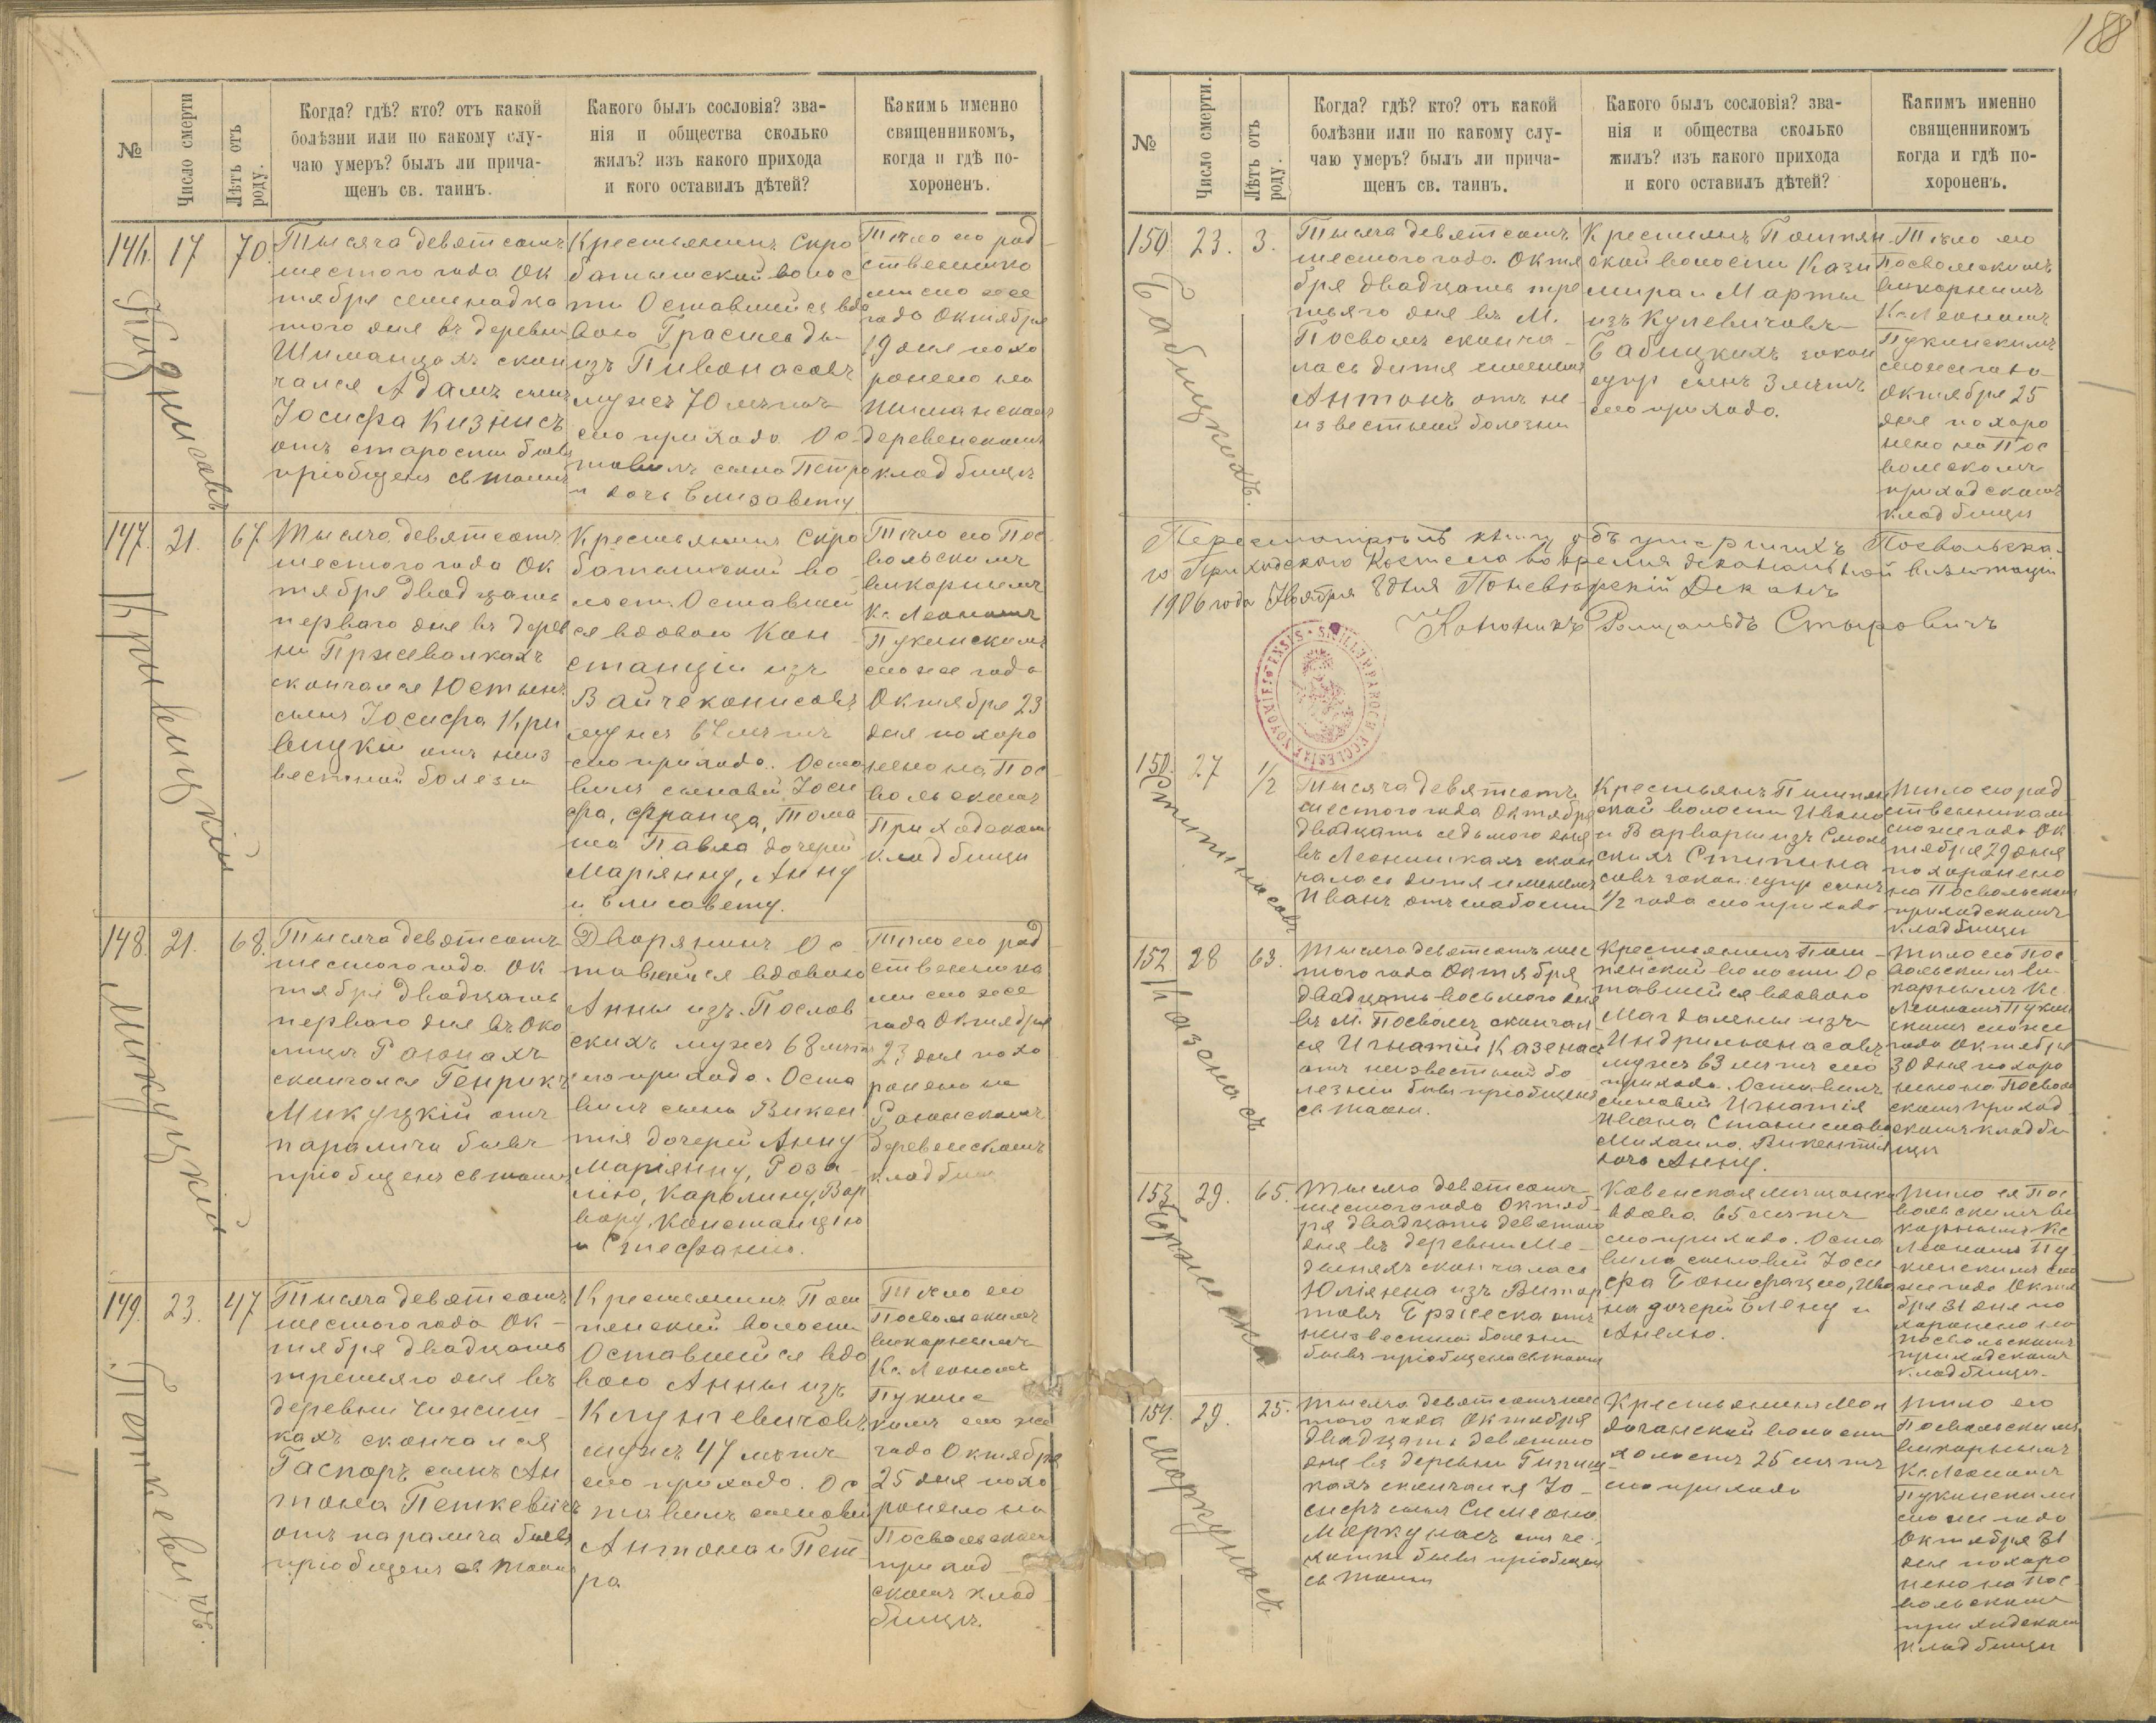 188
№
Число смерти
Лѣтъ отъ роду.
Когда? гдѣ? кто? отъ какой
болѣзни или по какому слу-
чаю умеръ? былъ ли прича-
щенъ св. таинъ.
Какого былъ сословія? зва-
нія и общества сколько
жилъ? изъ какого прихода
и кого оставилъ дѣтей?
Какимъ именно
священникомъ,
когда и гдѣ по-
хороненъ.
146. 17 70.
Тысяча девятсотъ
шестого года Ок
тября семнадца
того дня въ деревни
Шиманцахъ скон
чался Адамъ сынъ
Іосифа Кизнисъ
отъ старости бывъ
пріобщенъ св таинъ
Крестьянинъ Скро
батишской волос
ти Оставшейся вдо
вою
изъ Пивонасовъ
мужъ 70 летъ
сего прихода Ос
тавилъ сына Петра
и дочь Елизавету
Тело его род
ственнико
ми сего же
года Октября
19 дня похо
ронено на
деревенскомъ
кладбищѣ
147. 21. 67
Тысяча девятсотъ
шестого года Ок
тября двадцать
перваго дня въ дерев
ни Пржеволкахъ
скончался Юстынъ
сынъ Іосифа Кри
вицкій отъ неиз
вестной болезни
Кривицкій
Крестьянинъ Скро
батишской во
лости Оставшей
ся вдовою Кон
станціи изъ
Вайчеконисовъ
мужъ 67 летъ
сего прихода. Оста
вилъ сыновей Іоси
фа, Франца, Тома
ша Павла дочерей
Маріянну, Анну
и Елисавету.
Тело его Пос
вольскимъ
викарнымъ
Кс. Леономъ
Пукинскимъ
сего же года
Октября 23
дня похоро
нено на Пос
вольскомъ
Приходскомъ
кладбищи
148. 21. 68.
Тысяча девятсотъ
шестого года Ок
тября двадцать
перваго дня въ око
лицѣ Раюнахъ
скончался Генрикъ
Микуцкій отъ
паралича бывъ
пріобщенъ св таинъ
Микуцкій
Дворянинъ Ос
тавшейся вдовою
Анны изъ Послов
скихъ мужъ 68 летъ
сего прихода. Оста
вилъ сына Викен
тія дочерей Анну
Маріянну, Роза
лію, Каролину, Вар
вару, Констанцію
и Стефанію.
Тело его род
ственника
ми сего же
года Октября
23 дня похо
ронено на
Раюнскомъ
деревенскомъ
кладбищи
149. 23. 47
Тысяча девятсотъ
шестого года Ок-
тября двадцать
третьяго дня въ
деревни
кахъ скончался
Гаспоръ сынъ Ан
тона Петкевичъ
отъ паралича бывъ
пріобщенъ св таинъ
Петкевичъ.
Крестьянинъ Пом
пянской волости
Оставшейся вдо
вою Анны изъ
мужъ 47 летъ
сего прихода. Ос
тавилъ сыновей
Антона и Пет
ра
Тело его
Посвольскимъ
викарнымъ
Кс. Леономъ
Пукинс
кимъ сего же
года Октября
25 дня похо
ронено на
Посвольскомъ
приход
скомъ клад
бищѣ.
№
Число смерти.
Лѣтъ отъ роду.
Когда? гдѣ? кто? отъ какой
болѣзни или по какому слу-
чаю умеръ? былъ ли прича-
щенъ св. таинъ.
Какого былъ сословія? зва-
нія и общества сколько
жилъ? изъ какого прихода
и кого оставилъ дѣтей?
Какимъ именно
священникомъ
когда и гдѣ по-
хороненъ.
150. 23. 3.
Тысяча девятсотъ
шестого года Октя
бря двадцать тре
тьяго дня въ М.
Посволѣ сконча
лась дитя именемъ
Антонъ отъ не
известной болезни
Бабицкихъ.
Крестьянъ Помпян
ской волости Кази
мира и Марты
изъ Кулевичовъ
Бабицкихъ закон
супр сынъ 3 летъ
сего прихода.
Тело его
Посвольскимъ
викарнымъ
Кс. Леономъ
Пукинскимъ
сего же года
Октября 25
дня похоро
нено на Пос
вольскомъ
приходскомъ
кладбищи
Пересмотрѣлъ книгу объ умершихъ Посвольска-
го Приходского Костела во время деканальной визитаціи
1906 года Ноября 8 дня Поневѣжскій Деканъ
Каноникъ Ромуальдъ Стыровичъ
SIGILLUM PAROCH ECCLESIAE
150. 27 1/2
Тысяча девятсотъ
шестого года Октября
двадцать седьмого дня
въ Леонишкахъ скон
чалась дитя именемъ
Иванъ отъ слабости
Стипинасовъ
Крестьянъ Помпян
ской волости Ивана
и Варвары изъ Смоль
скихъ Стипина
совъ закон супр сынъ
1/2 года сего прихода
Тело его род
ственниками
сего же года Ок
тября 29 дня
похоронено
на Посвольскомъ
приходскомъ
кладбищи
152 28 63.
Тысяча девятсотъ шес
того года Октября
двадцать восьмого дня
въ М. Посволѣ скончал
ся Игнатій Казенасъ
отъ неизвестной бо
лезни бывъ пріобщенъ
св таинъ.
Казенасъ
Крестьянинъ Пом-
пянской волости Ос
тавшейся вдовою
Магдалены изъ
Индрильонасовъ
мужъ 63 летъ сего
прихода. Оставилъ
сыновей Игнатія
Ивана Станислава
Михаила, Викентія
дочь Анну.
Тело его Пос
вольскимъ ви
карнымъ Кс.
Леономъ Пукин
скимъ сего же
года Октября
30 дня похоро
нено на Посволь
скомъ приход
скомъ кладби
щи
153 29. 65.
Тысяча девятсотъ
шестого года Октяб
ря двадцать девятого
дня въ деревни Ме-
дыняхъ скончалась
Юліянна изъ Витар
товъ Бржеска отъ
неизвестной болезни
бывъ пріобщена св таинъ
Бржеска
Ковенская мещанка
вдова 65 летъ
сего прихода. Оста
вила сыновей Іоси
фа Бонифацыо, Ива
на дочерей Елену и
Анелю.
Тело ея Пос
вольскимъ ви
карнымъ Кс
Леономъ Пу
кинскимъ сего
же года Октя
бря 31 дня по
хоронено на
Посвольскомъ
приходскомъ
кладбищи.
154. 29. 25.
Тысяча девятсотъ шес
того года Октября
двадцать девятого
дня въ деревни
кахъ скончался Іо-
сифъ сынъ Симеона
Маркунасъ отъ че-
хотки бывъ пріобщенъ
св таинъ
Маркунасъ
Крестьянинъ
волости
холостъ 25 летъ
сего прихода
Тело его
Посвольскимъ
викарнымъ
Кс. Леономъ
Пукинскимъ
сего же года
Октября 31
дня похоро
нено на Пос
вольскомъ
приходскомъ
кладбищи